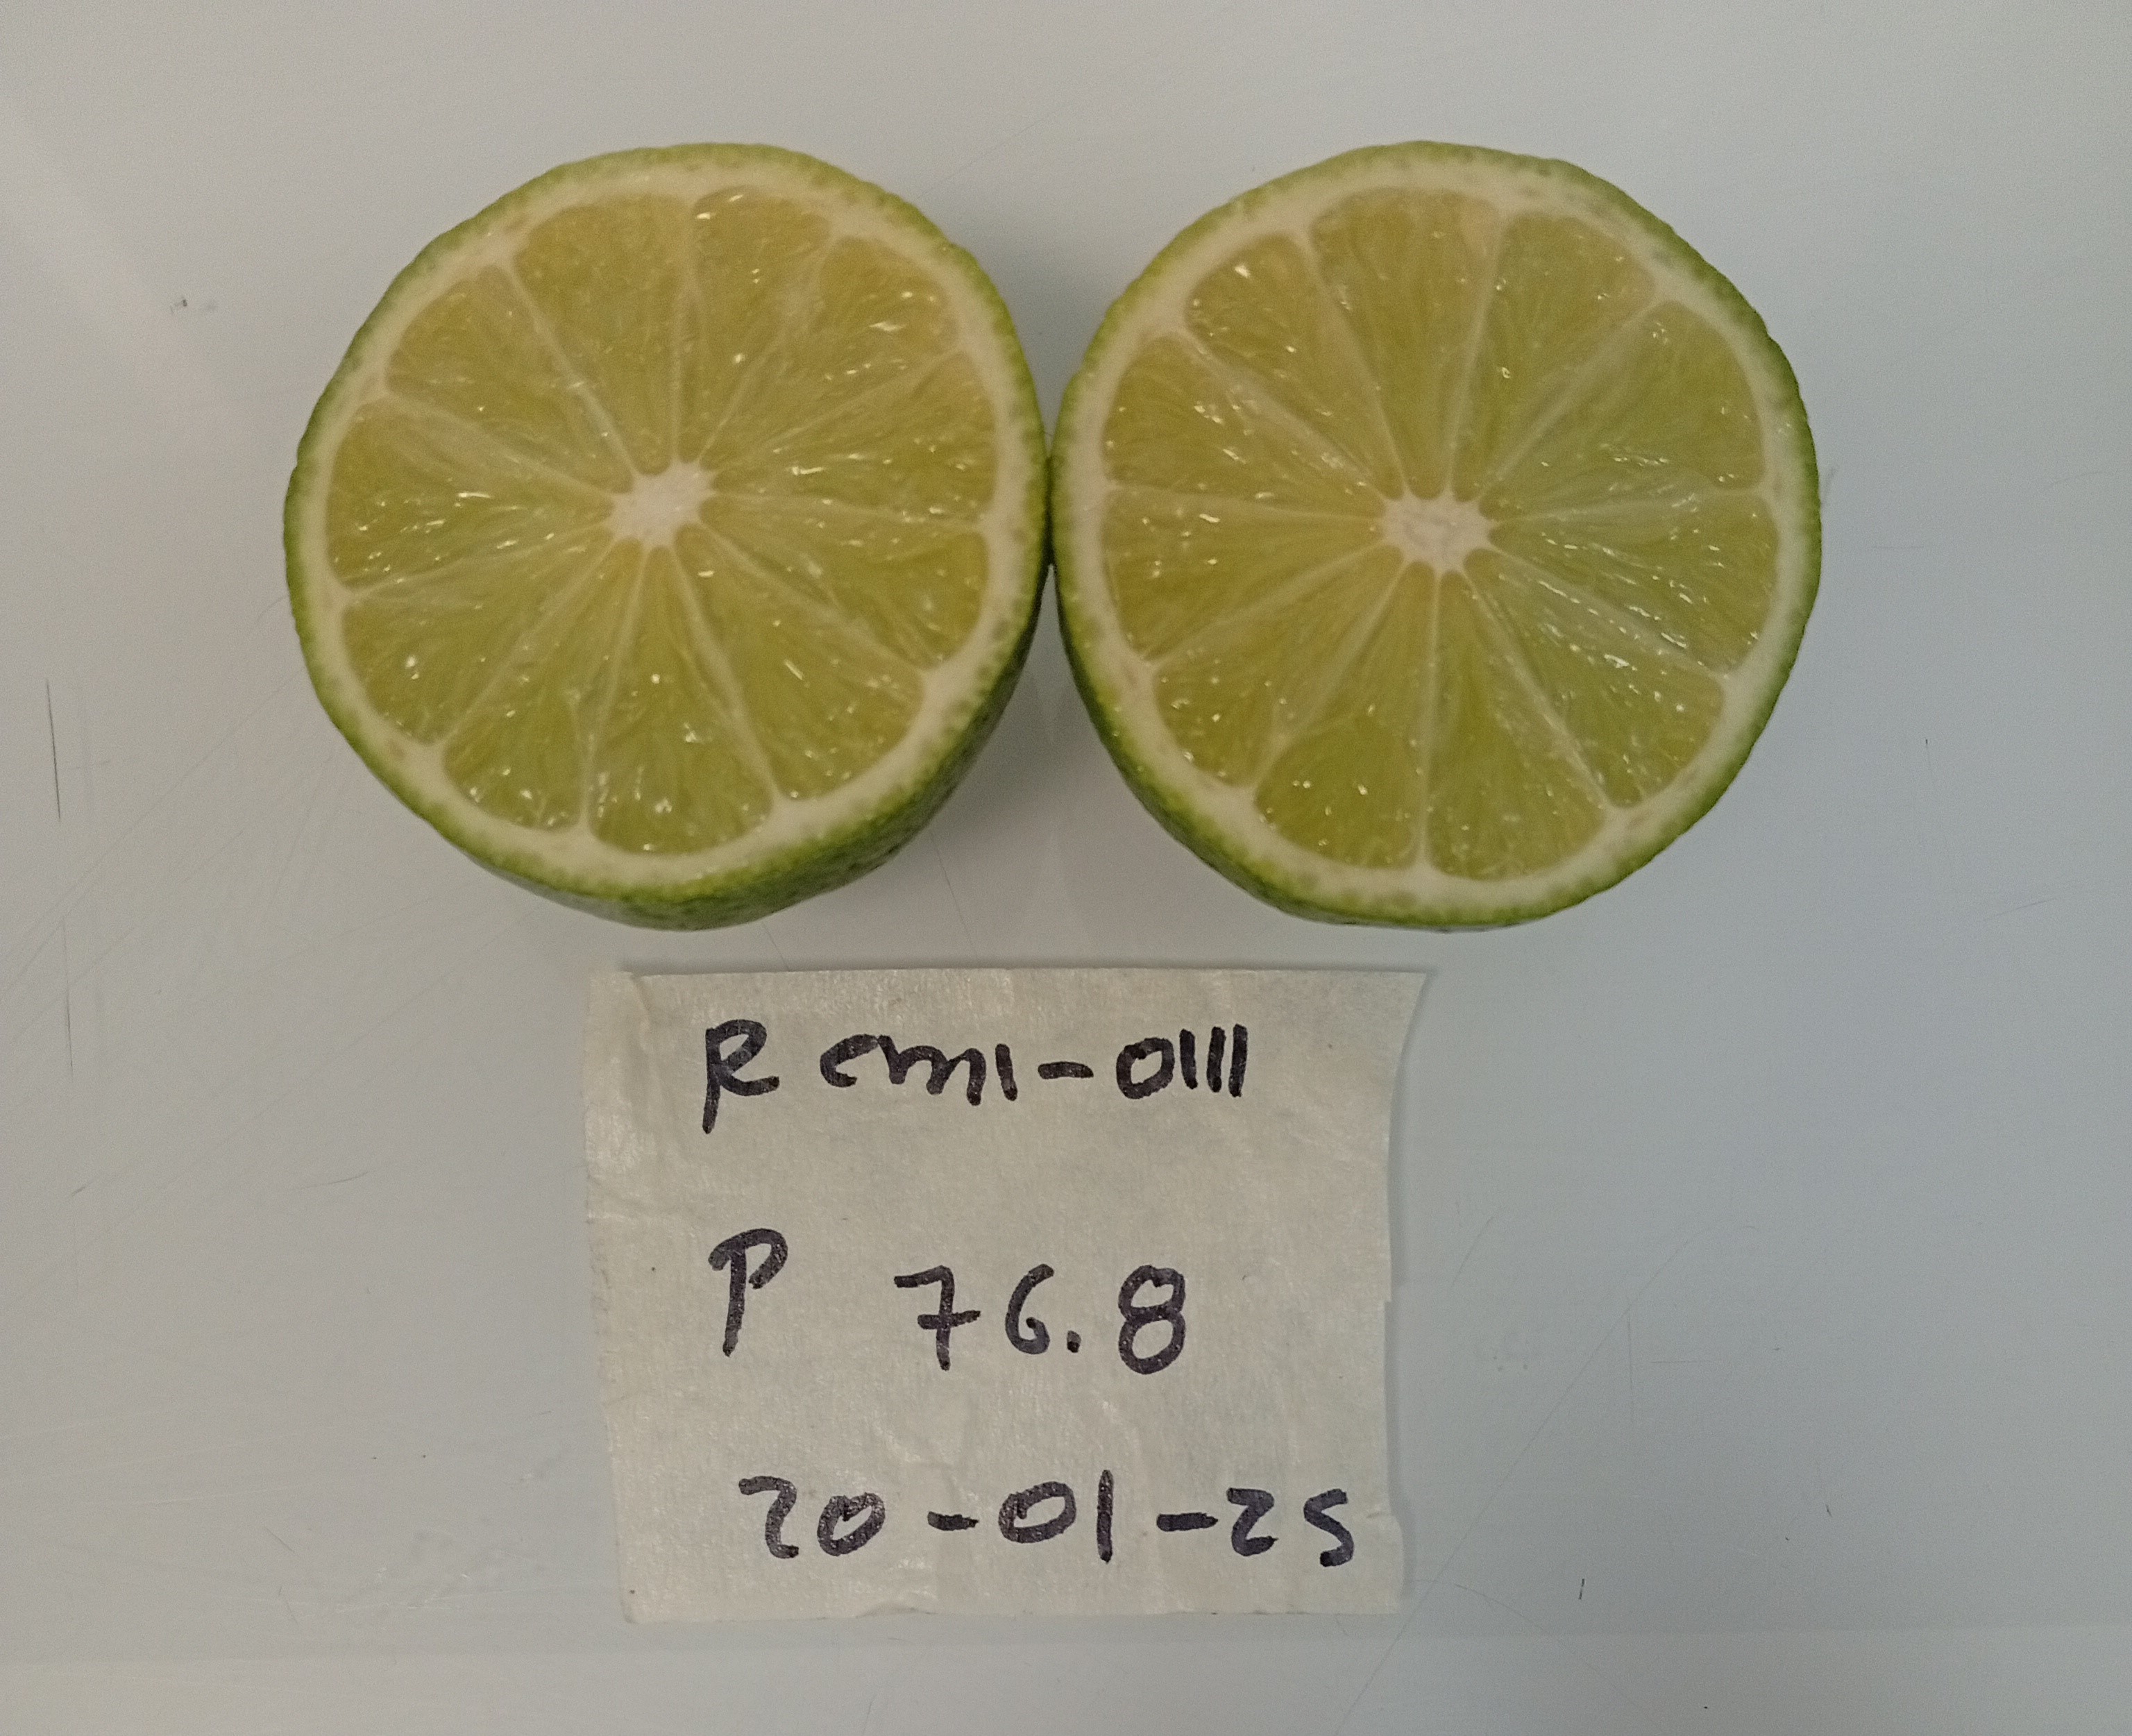 R cm1-0111
P 76.8
20-01-25